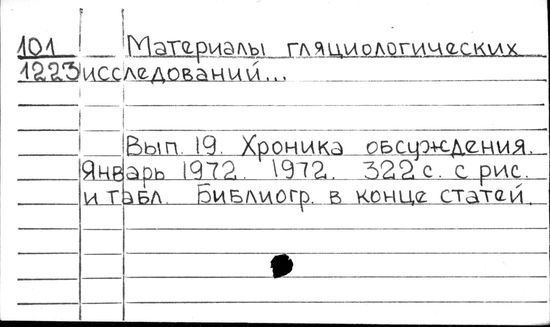 101 Материалы гляциологических
1223 исследований...
Вып. 19. Хроника обсуждения.
Январь 1972. 1972. 322 с. с рис.
и табл. Библиогр. в конце статей.